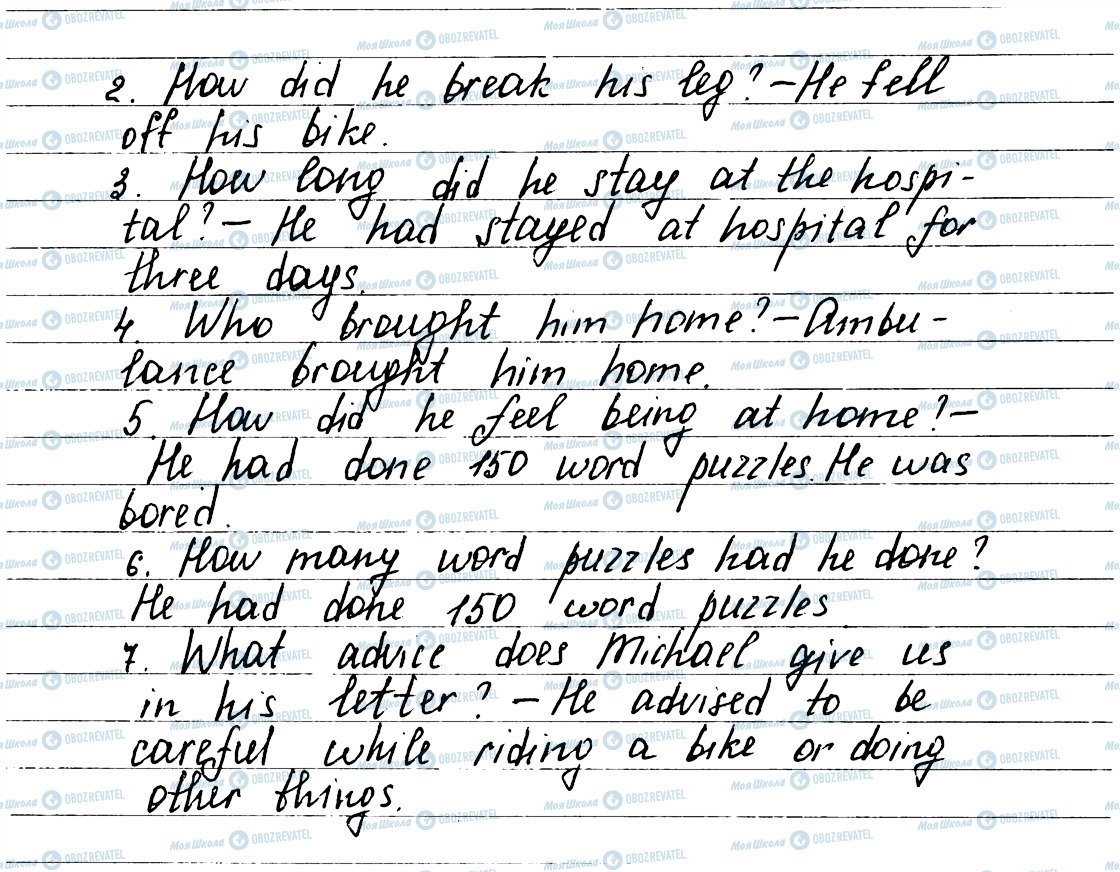 2. How did he break his leg? – He fell
off his bike.
3. How long did he stay at the hospi-
tal? – He had stayed at hospital for
three days.
4. Who brought him home? – Ambu-
lance brought him home.
5. How did he feel being at home? –
He had done 150 word puzzles. He was
bored.
6. How many word puzzles had he done?
He had done 150 word puzzles
7. What advice does Michael give us
in his letter? – He advised to be
careful while riding a bike or doing
other things.
Моя Школа OBOZREVATEL